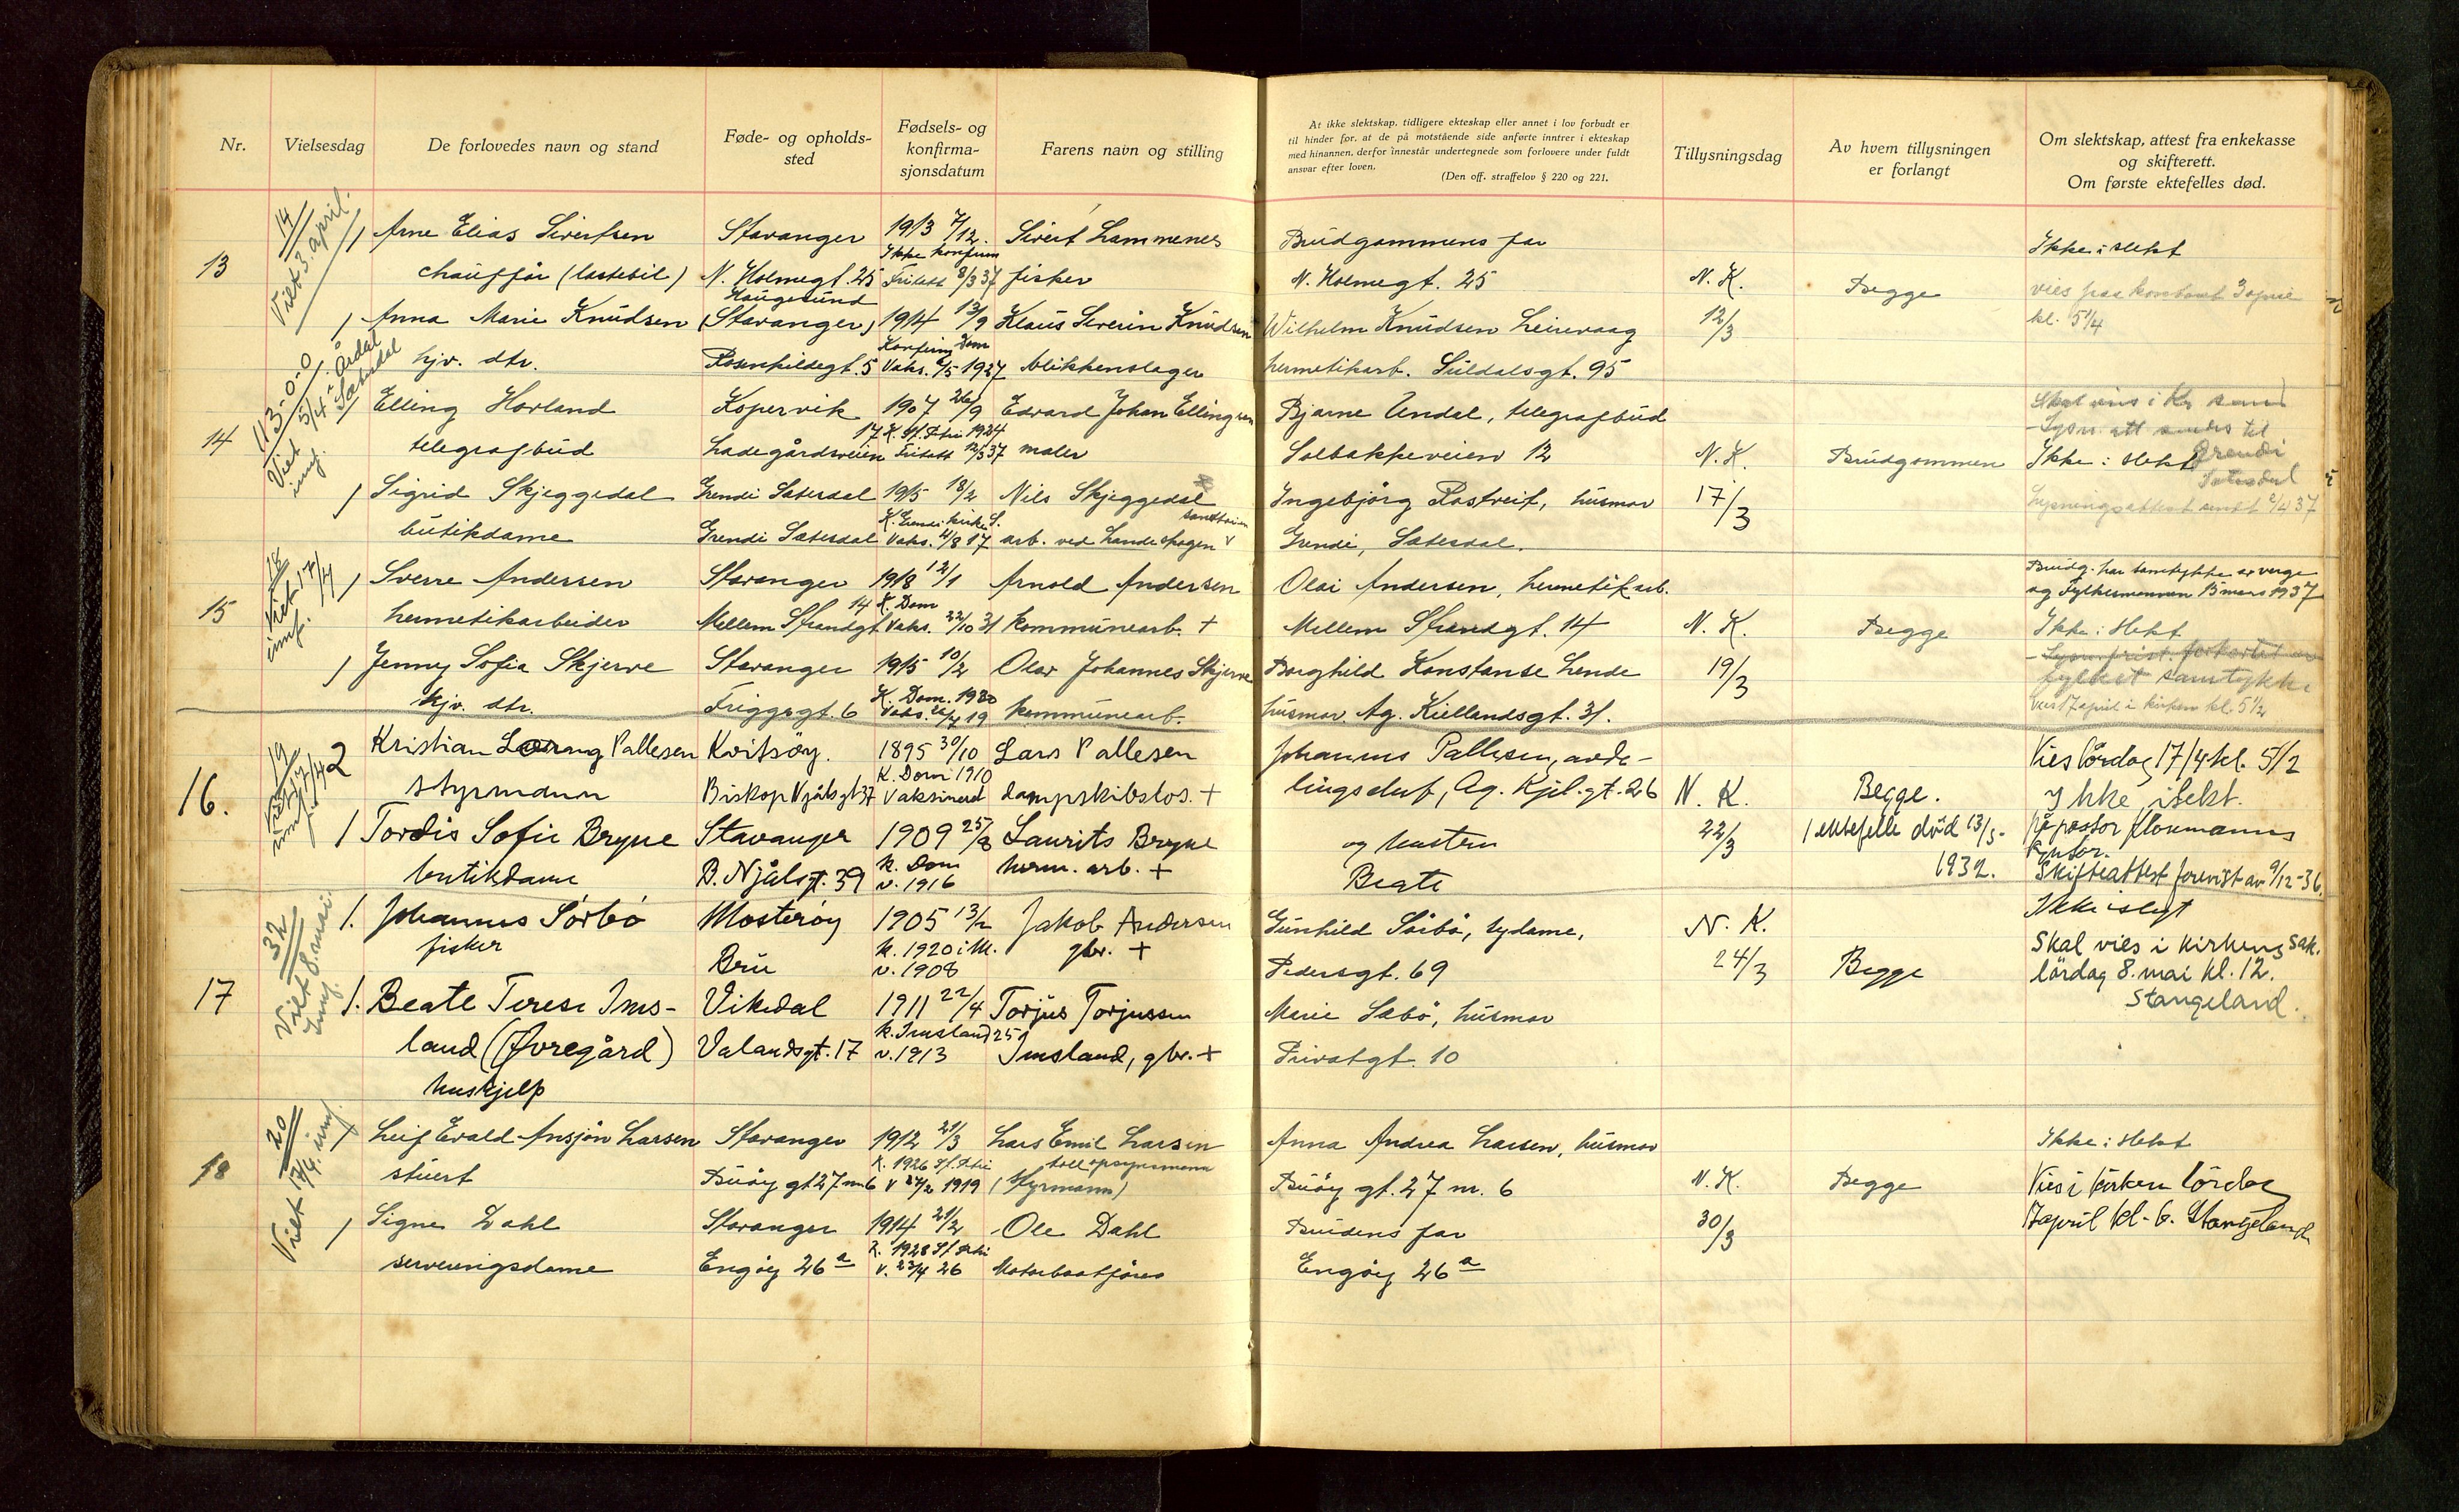 Nr.
Vielsesdag
De forlovedes navn og stand
Føde- og opholds-
sted
Fødsels- og
konfirma-
sjonsdatum
Farens navn og stilling
At ikke slektskap, tidligere ekteskap eller annet i lov forbudt er
til hinder for, at de på motstående side anførte inntrer i ekteskap
med hinannen, derfor innestår undertegnede som forlovere under fuldt
ansvar efter loven.
(Den off. straffelov § 220 og 221.
Tillysningsdag
Av hvem tillysningen
er forlangt
Om slektskap, attest fra enkekasse
og skifterett.
Om første ektefelles død.
13
14
Viet 3. april.
1 Arne Elias Sivertsen Stavanger 1913 7/12. Sivert Lammenes
Ikke konfirm
chauffør (lastebil) N. Holmegt. 25 Fritatt 8/3 37 fisker
Haugesund
1 Anna Marie Knudsen (Stavanger) 1914 13/9 Klaus Severin Knudsen
Konfirm. Dom
hjv. dtr. Rosenkildegt. 5 Vaks. 1927 blikkenslager
Brudgommens far
N. Holmegt. 25
Wilhelm Knudsen Leirvaag
hermetikarb. Suldalsgt. 95
N. K.
12/3
Begge
Ikke i slekt
vies paa kontoret 3 april
kl. 5 1/4
14
113-0-0
Viet 5/4 i Årdal
Sætesdal
1 Elling Hovland Kopervik 1907 26/9 Edvard Johan Ellingsen
17 K. St. Petri 1924
telegrafbud Ladegårdsveien Fritatt 12/3 37 maler
1 Sigrid Skjeggedal Grendi Sætesdal 1915 18/2 Nils Skjeggedal
K. Grendi kirke S.
butikdame Grendi Sætesdal Vaks. 4/8 17 arb. ved Landeskogen
Bjarne Undal, telegrafbud
Solbakkeveien 12
Ingebjørg Rostveit, husmor
Grendi, Sætesdal.
N. K.
17/3
Brudgommen
Skal vies i Kr sand
Lysn. att sendes til
Grendi
Ikke i slekt
Sætesdal
Lysningsattest sendt 2/4 37
15
18
Viet 17/4
1 Sverre Andersen Stavanger 1918 12/1 Arnold Andersen
14 K. Dom
hermetikarbeider Mellem Strandgt. Vaks. 22/10 31 kommunearb. +
1 Jenny Sofia Skjerve Stavanger 1915 10/2 Olav Johannes Skjerve
K. Dom. 1930
hjv. dtr. Friggsgt. 6 Vaks. 19 kommunearb.
Olai Andersen, hermetikarb.
Mellem Strandgt. 14
Borghild Konstanse Lende
husmor. Ag. Kiellandsgt. 31.
N. K.
19/3
Begge
Brudg. har samtykke av verge
og Fylkesmannen 15 mars 1937
Ikke i slekt
Lysn. frist. forkortet av
fylket samtykke
Viet 17 april i kirken kl. 5 1/2
16.
19
Viet 17/4
2 Kristian Lorang Pallesen Kvitsøy. 1895 30/10 Lars Pallesen
K. Dom 1910
styrmann Biskop Njålsgt 37 Vaksinerd dampskibslos. +
1 Tordis Sofie Bryne Stavanger 1909 25/8 Laurits Bryne
k. Dom
butikdame B. Njålsgt. 39 v. 1916 herm. arb. +
Johannes Pallesen, avde-
lingschef, Ag. Kjel. gt. 26
og hustru
Beate
N. K.
22/3
Begge.
1 ektefelle død 13/5-
1932.
Vies lördag 17/4 kl. 5 1/2
Ikke i slekt.
på pastor Ploumanns
kontor.
Skifteattest forevist av 9/12-36.
17
32
Viet 8. mai.
1. Johannes Sørbø Mosterøy 1905 13/2 Jakob Andersen
fisker Bru k. 1920 i M. gbr. +
v. 1908
1. Beate Terese Ims- Vikedal 1911 22/4 Torjus Torjussen
k. Imsland 25
land (Øvregård) Valandsgt. 17 v. 1913 Imsland, gbr. +
hushjelp
Gunhild Sørbø, sydame,
Pedersgt. 69
Marie Sæbø, husmor
Privatgt. 10
N. K.
24/3
Begge
Ikke i slegt
Skal vies i kirkens sak.
lördag 8. mai kl. 12.
Stangeland.
18
20
Viet 17/4.
1 Leif Evald Ansjøn Larsen Stavanger 1912 21/3 Lars Emil Larsen
K. 1926 St. Petri tollopsynsmann
stuert Buøy gt 27 nr 6 v 1919 (Styrmann)
1 Signe Dahl Stavanger 1914 21/2 Ole Dahl
K. 1928 St. Petri
serveringsdame Engøy 26 a v. 23/4 26 Motorbaatfører
Anna Andrea Larsen, husmor
Buøy gt. 27 nr. 6
Brudens far
Engøy 26 a
N. K.
30/3
Begge
Ikke i slekt
Vies i kirken lördag
17 april kl. 6. Stangeland